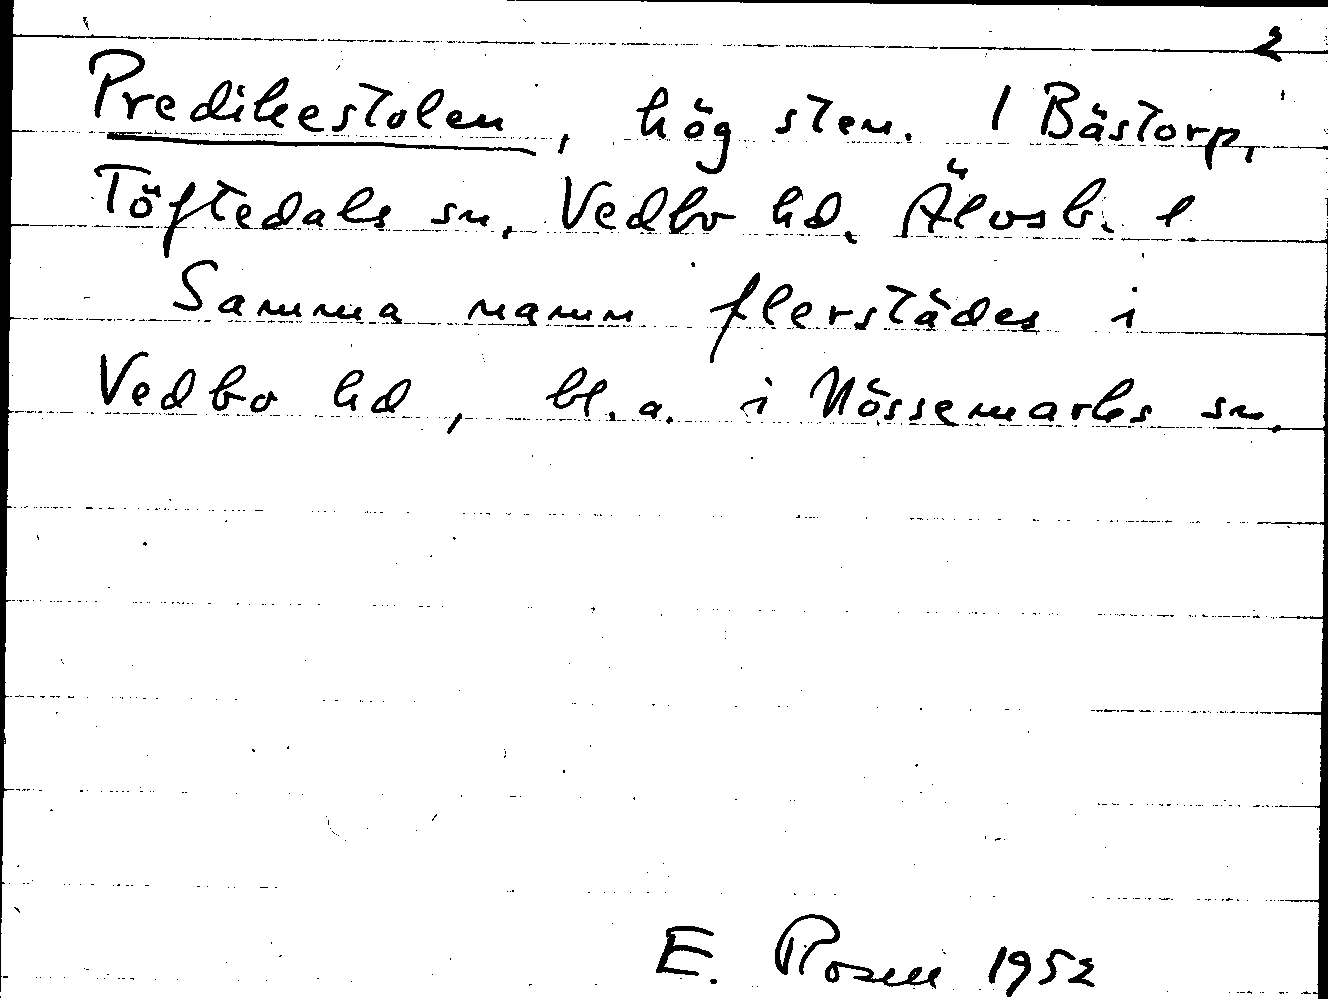 2
Predikestolen, hög sten. I Bästorp,
Töftedals sn, Vedbo hd. Älvsb. l.
Samma namn flerstädes i
Vedbo hd, bl.a. i Nössemarks sn.
E. Rosen 1952